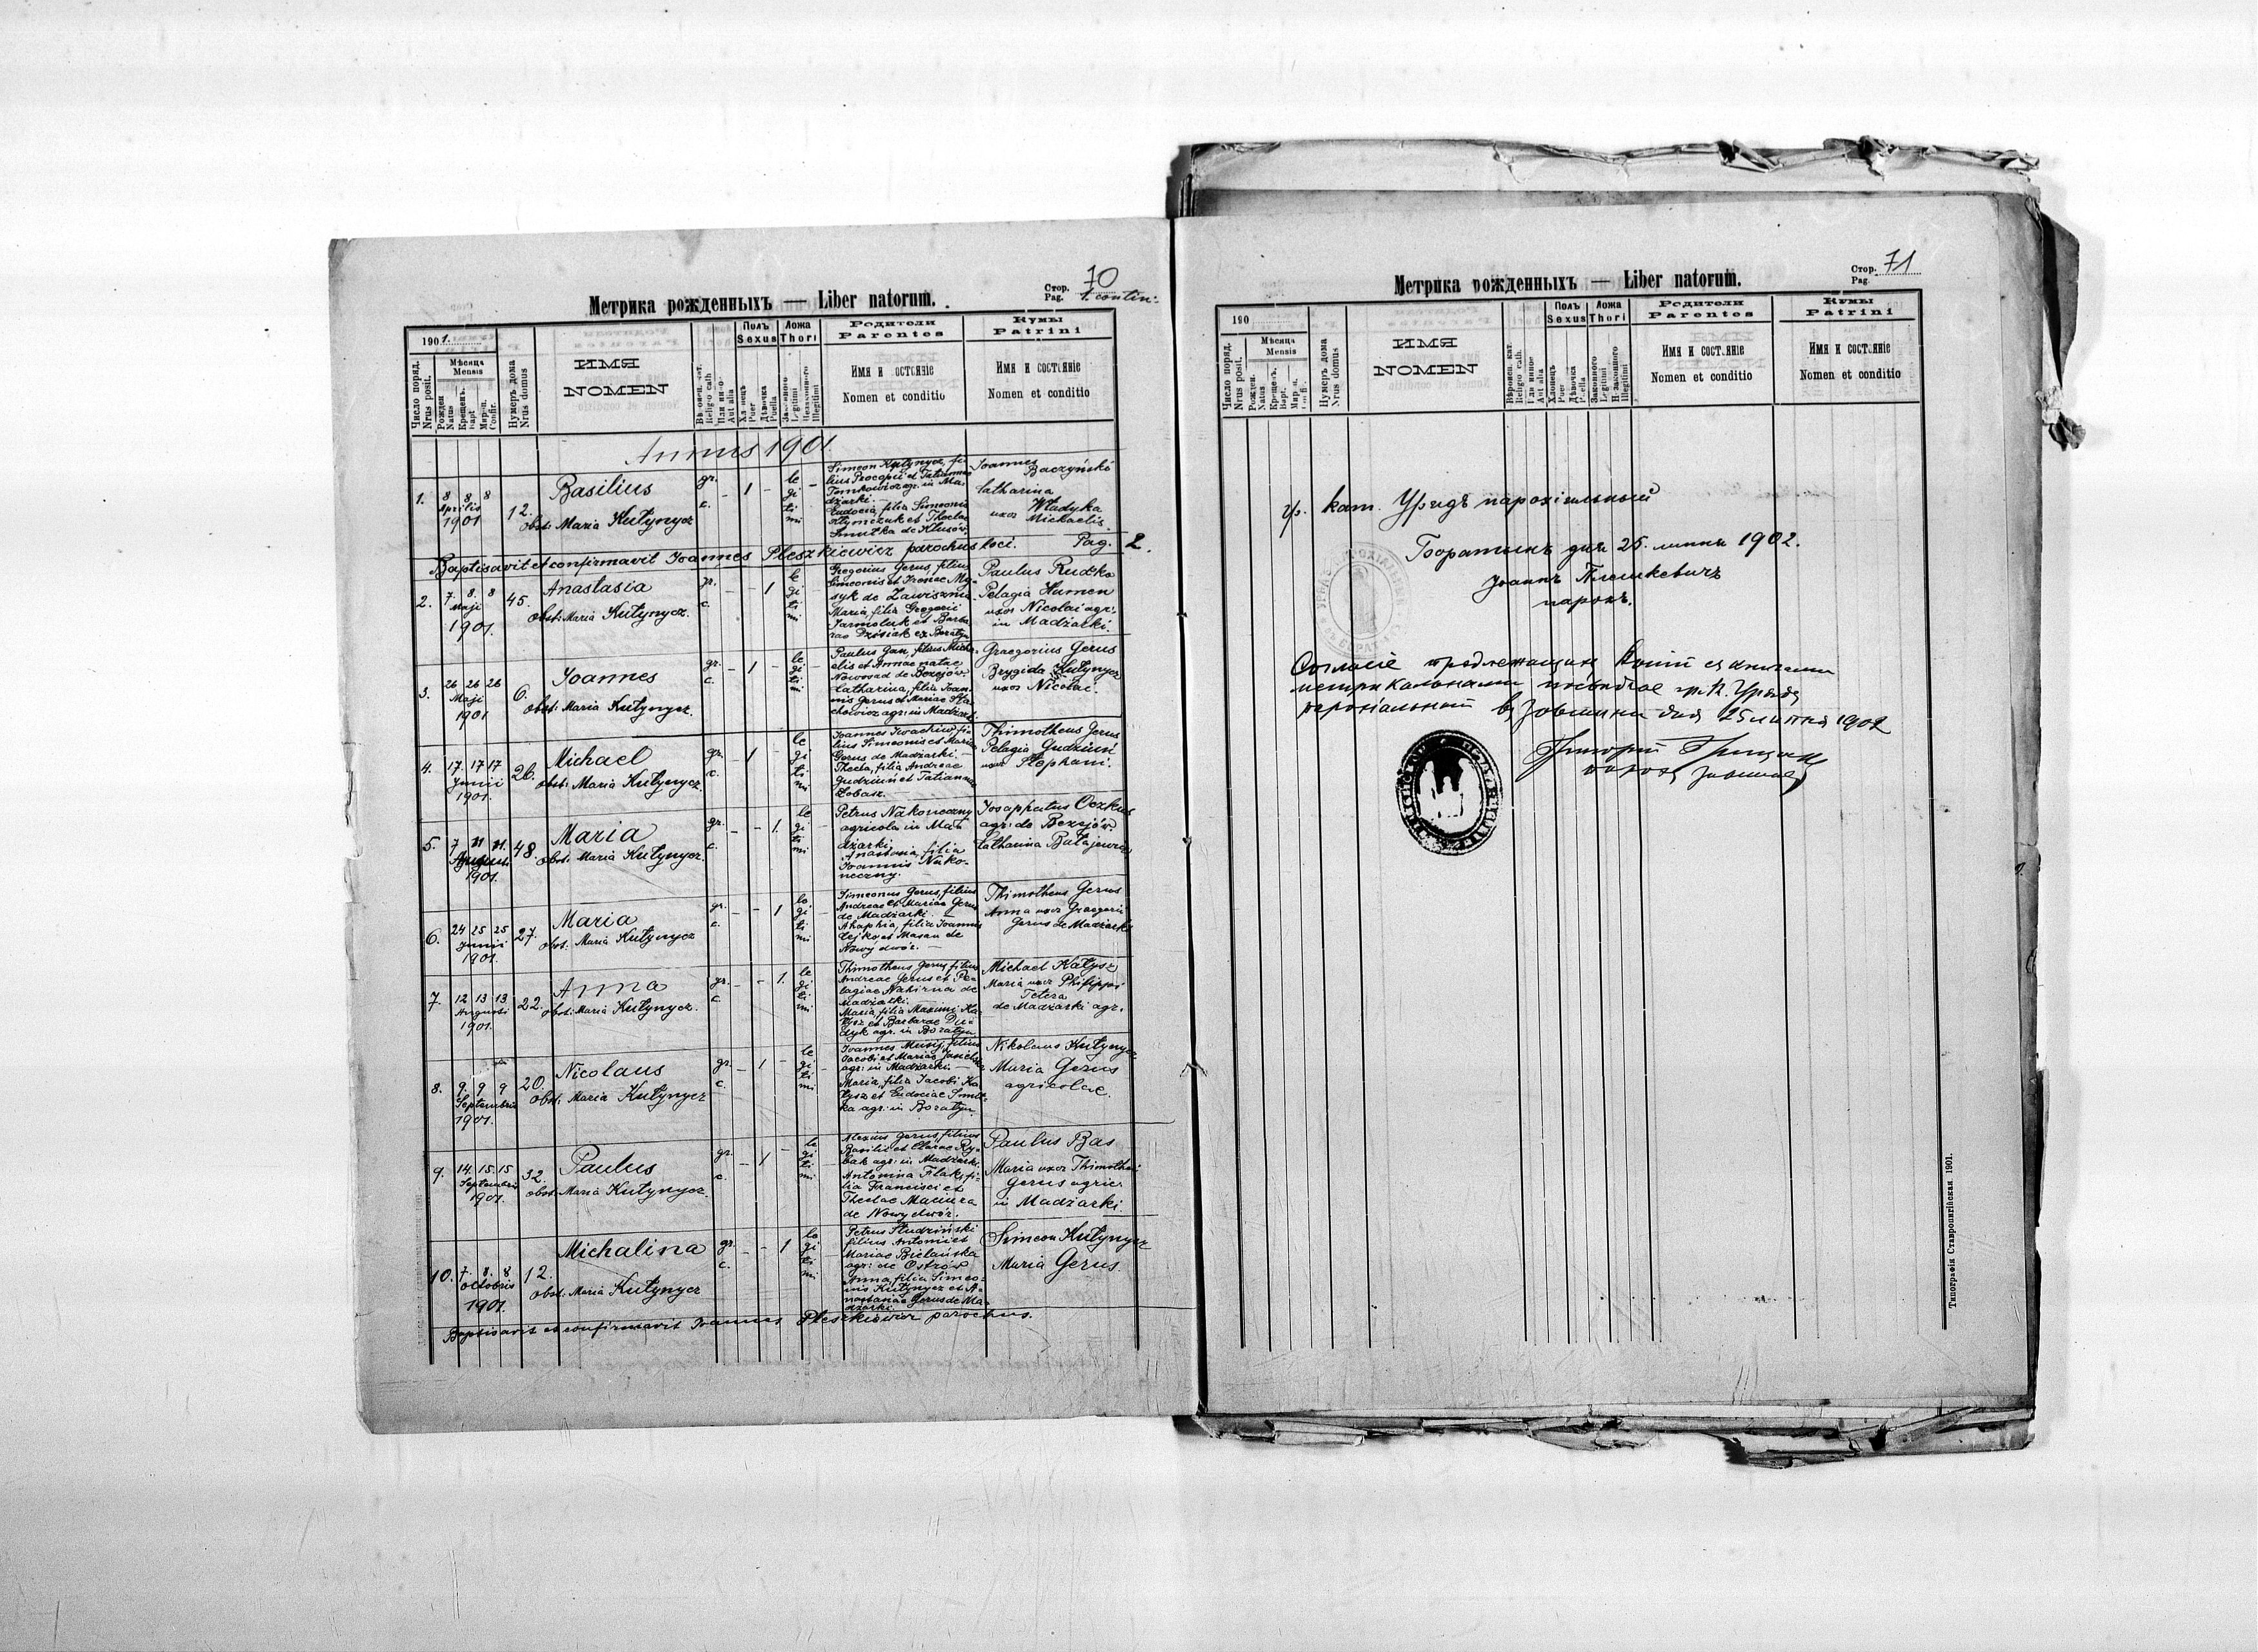 Метрика рожденныхъ — Liber natorum.
Стор. Pag. 70
1. contin:
1901.
Число поряд. Nrus posit.
Мѣсяца Mensis
Рожден Natus
Крещенъ. Bapt
Миров. Confir.
Нумеръ дома Nrus domus
ИМЯ
NOMEN
Religio cath
Или ино-
Aut alia
Полъ Sexus
Puer
Дѣвочка Puella
Ложа Thori
Законного Legitimi
Незаконного Illegitimi
Родители
Parentes
Имя и состояніе
Nomen et conditio
Кумы
Patrini
Имя и состояніе
Nomen et conditio
Annus 1901.
1. 8 8 8 Aprilis 1901 12. Basilius
obst: Maria Kutynycz
gr. c. - 1 - le gi ti mi -
Simeon Kutynycz, fi-
lius Procopii et Tatiannae
Tomkowicz agr. in Ma-
dżarki. -
Eudocia, filia Simeonis
Klymczuk et Theclae
Smużka de Kłusów.
Joannes
Baczyński
Catharina
Władyka
uxor Michaelis.
Baptisavit et confirmavit Joannes Pleszkiewicz parochus loci. Pag. 2.
2. 7. 8. 8 Maji 1901. 45. Anastasia
obst: Maria Kutynycz.
gr. c. - - 1 le gi ti mi
Gregorius Gerus, filius
Simeonis et Irenae My-
syk de Zawisznia
Maria, filia Gregorii
Jarmoluk et Barba-
rae Dzisiak ex Boratyn
Paulus Rudko
Pelagia Humen
uxor Nicolai agr:
in Madżarki.
3. 26 26 26 Maji 1901 6. Joannes
obst: Maria Kutynycz.
gr. c. - 1 - le gi ti mi -
Paulus Gan, filius Micha-
elis et Annae natae
Nowosad de Bezejów
Catharina, filia Joan-
nis Gerus et Mariae Sta-
chowicz agr: in Madżarki
Graegorius Gerus
Brygida Kutynycz
uxor Nicolai.
4. 17. 17 17 Junii 1901. 26. Michael
obst: Maria Kutynycz.
gr. c. - 1 - le gi ti mi
Joannes Iwachiw fi-
lius Simeonis et Mariae
Gerus de Madżarki. -
Thecla, filia Andreae
Gudziun et Tatiannae
Łobasz. -
Thimotheus Gerus
Pelagia Gudziun
uxor Stephani.
5. 7 11 11. Augusti 1901. 48. Maria
obst: Maria Kutynycz.
gr. c. - - 1. le gi ti mi
Petrus Nakoneczny
agricola in Ma-
dżarki
Anastasia, filia
Joannis Nako-
neczny. -
Josaphatus Oczkus
agr: de Bezejów.
Catharina
6. 24 25 25 Junii 1901. 27. Maria
obst: Maria Kutynycz
gr. c. - - 1 le gi ti mi
Simeonus Gerus, filius
Andreae et Mariae Gerus
de Madżarki. -
Ahaphia, filia Joannis
Lejko et Masau de
Nowy dwór. -
Thimotheus Gerus
Anna uxor Graegorii
Gerus de Madżarki
7. 12 13 13 Augusti 1901. 22. Anna
obst: Maria Kutynycz.
gr. c. - - 1. le gi ti mi
Thimotheus Gerus, filius
Andreae Gerus et Pe-
lagiae Nahirna de
Madżarki.
Maria, filia Maximi Ka-
łysz et Barbarae Di-
dyk agr. in Boratyn
Michael Kałysz
Maria uxor Philippi
Tetera
de Madżarki agr.
8. 9. 9 9 Septembris 1901. 20. Nicolaus
obst: Maria Kutynycz
gr. c. - 1 - le gi ti mi
Joannes Musij, filius
Jacobi et Mariae
agr: in Madżarki. -
Maria, filia Jacobi Ka-
łysz et Eudociae Smuż-
ka agr: in Boratyn
Nikolaus Kutynycz
Maria Gerus
agricolae.
9. 14. 15. 15 Septembris 1901. 32. Paulus
obst: Maria Kutynycz.
gr. c. - 1 le gi ti mi
Alexius Gerus, filius
Basilii et Clarae Ry-
bak agr: in Madżarki.
Antonina Flak, fi-
lia Francisci et
Theclae Maciura
de Nowy dwór.
Paulus Bas
Maria uxor Thimothei
Gerus agric.
in Madżarki.
10. 7. 8. 8 Octobris 1901. 12. Michalina
obst: Maria Kutynycz
gr. c. - - 1 le gi ti mi
Petrus Studziński
filius Antonii et
Mariae Bielańska
agr: de Ostrów
Anna, filia Simeo-
nis Kutynycz et A-
nastasiae Gerus de Ma-
dżarki.
Simeon Kutynycz
Maria Gerus.
Baptisavit et confirmavit Joannes Pleszkiewicz parochus.
Метрика рожденныхъ — Liber natorum.
Стор. Pag. 71
190
Число поряд. Nrus posit.
Мѣсяца Mensis
Рожден. Natus
Крещенъ. Bapt.
Нумеръ дома Nrus domus
ИМЯ
NOMEN
Вѣроисп. кат. Religio cath.
Или иное Aut alia
Полъ Sexus
Хлопецъ Puer
Дѣвочка Puella
Ложа Thori
Законного Legitimi
Незаконного Illegitimi
Родители
Parentes
Имя и состояніе
Nomen et conditio
Кумы
Patrini
Имя и состояніе
Nomen et conditio
гр. кат. Урядъ парохіяльный
Боратынъ дня 25. липня 1902.
Іоаннъ Плешкевичъ
парохъ.
Согласіе предлежащих копій съ книгами
метрикальными посвѣдчае гр. к. Урядъ
парохіальный въ Завишни дня 25 липня 1902
Григорій
парох Завишнѣ
Типографія Ставропигійская 1901.